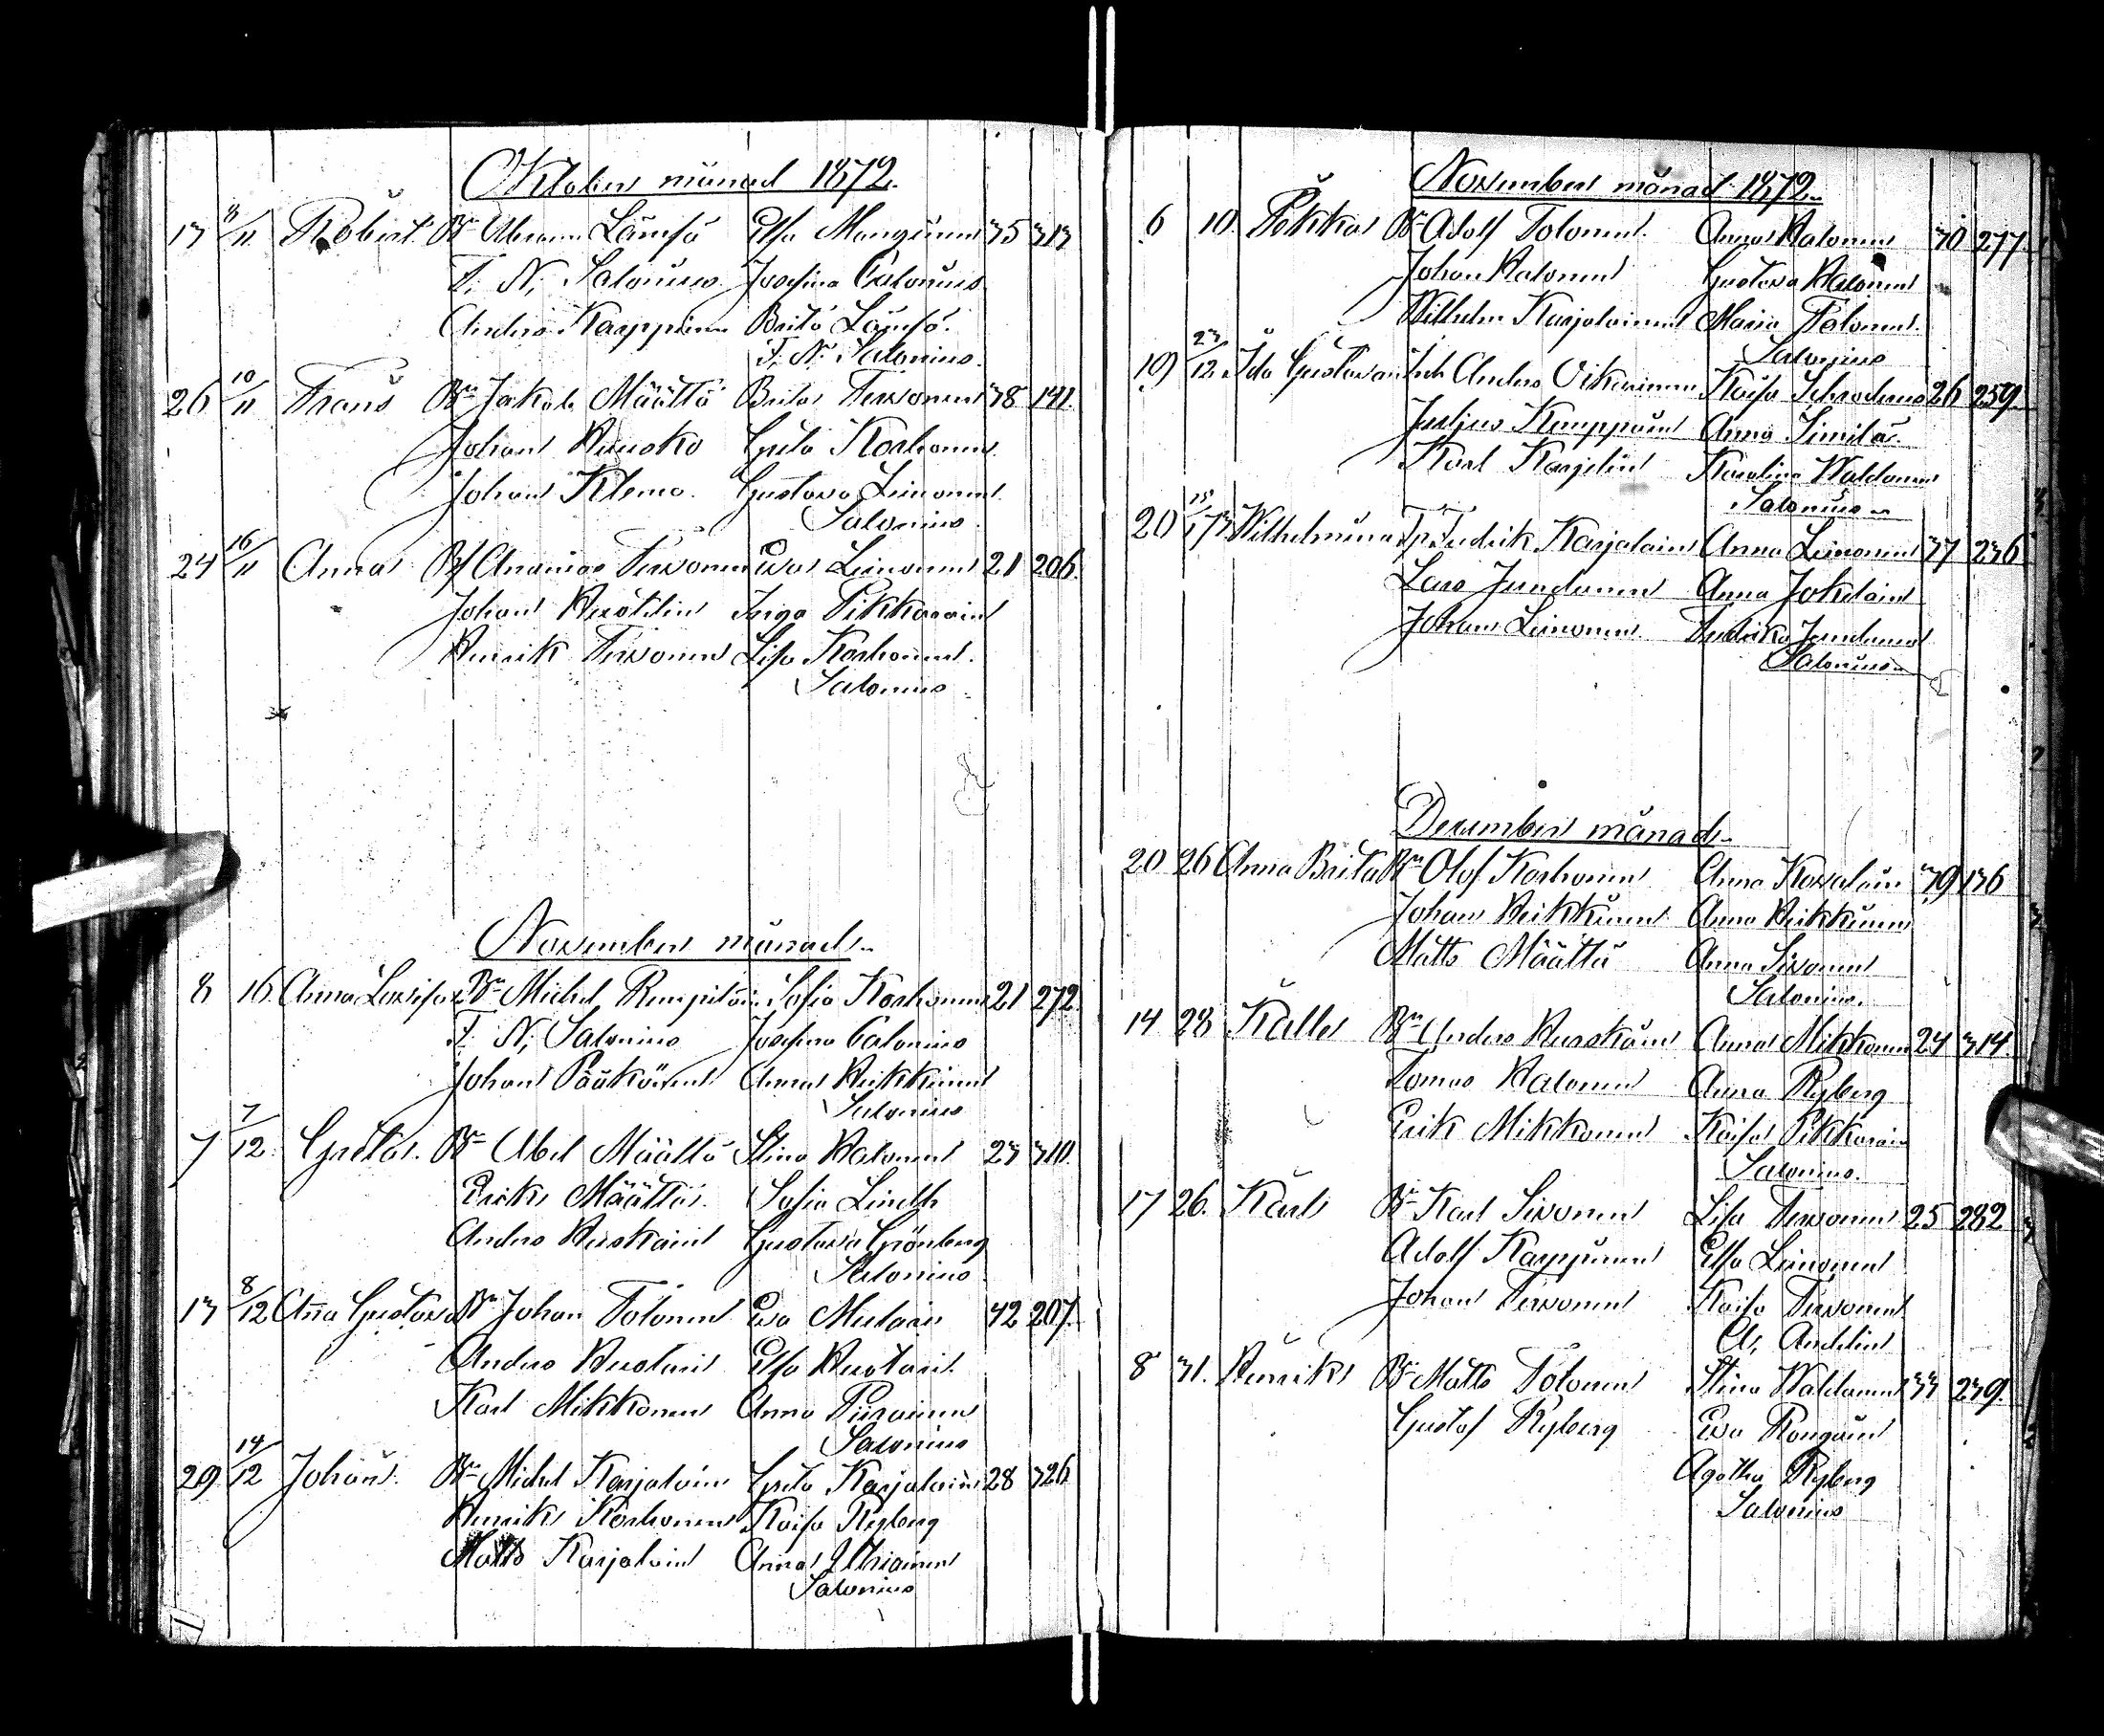 Oktober månad 1872.
13 8/11 Robert Bn Abram Lämsä Elsa Manginen 35 313
F. N. Salonius Josefina Calonius
Anders Karppinen Brita Lämsä.
F. N. Salonius.
26 10/11 Frans Bn Jakob Määttä Brita Tervonen 38 141.
Johan Huusko Greta Korhonen
Johan Klemo. Gustava Leinonen
Salonius.
24 16/11 Anna Ananias Tervonen Eva Leinonen 21 206.
Johan Inga Pikkarain
Henrik Tervonen Lisa Korhonen.
Salonius
November månad.
8 16 Anna Lovisa Bn Michel Sofia Korhonen 21 272.
F. N. Salonius Josefina Calonius
Johan Pääkönen Anna Heikkinen
Salonius
7 7/12. Greta. Bn Abel Määttä Stina Halonen 23 310.
Erik Määttä. Sofia Lindh
Anders Heiskain Gustava Grönberg
Salonius.
13 8/12 Anna Gustava Bn Johan Tolonen Eva Mulari 42 207.
Anders Hurtarin Elsa Hurtarin.
Karl Mikkonen Anna Piirainen
Salonius
29 14/12 Johan. Bn Michel Karjalain Greta Karjalain 28 326
Henrik Korhonen Kaisa Ryberg
Matts Karjalain Anna
Salonius
November månad 1872.
6 10. Pekka Bn Adolf Tolonen. Anna Halonen 30 277.
Johan Halonen Gustava Halonen
Wilhelm Karjalainen Maria Tolonen.
Salonius
19 23/12 Ida Gustava Anders Oikarinen Kaisa Schroderus 26 259.
Julius Kauppinen Anna Similä.
Karl Karjelin Karolina Waldanen
Salonius
20 15/1 73 Wilhelmina Tp Fredrik Karjalain Anna Leinonen 37 236
Lars Juntunen Anna Jokelain
Johan Leinonen. Fredrika Juntunen
Salonius
December månad.
20 26 Anna Brita Bn Olof Korhonen Anna Kovalain 39 136
Johan Heikkinen Anna Heikkinen
Matts Määttä Anna Sivonen
Salonius.
14 28 Kalle Bn Anders Heiskain Anna Mikkonen 24 314.
Tomas Halonen Anna Ryberg
Erik Mikkonen Kaisa Pikkarain
Salonius.
17 26. Karl Bn Karl Sivonen Lisa Tervonen 25 282
Adolf Karppinen Elsa Leinonen
Johan Tervonen Kaisa Tervonen
A. Andelin
8 31. Henrik Bn Matts Tolonen Stina Waldanen 33 239.
Gustaf Ryberg Eva Rongain
Agatha Ryberg
Salonius